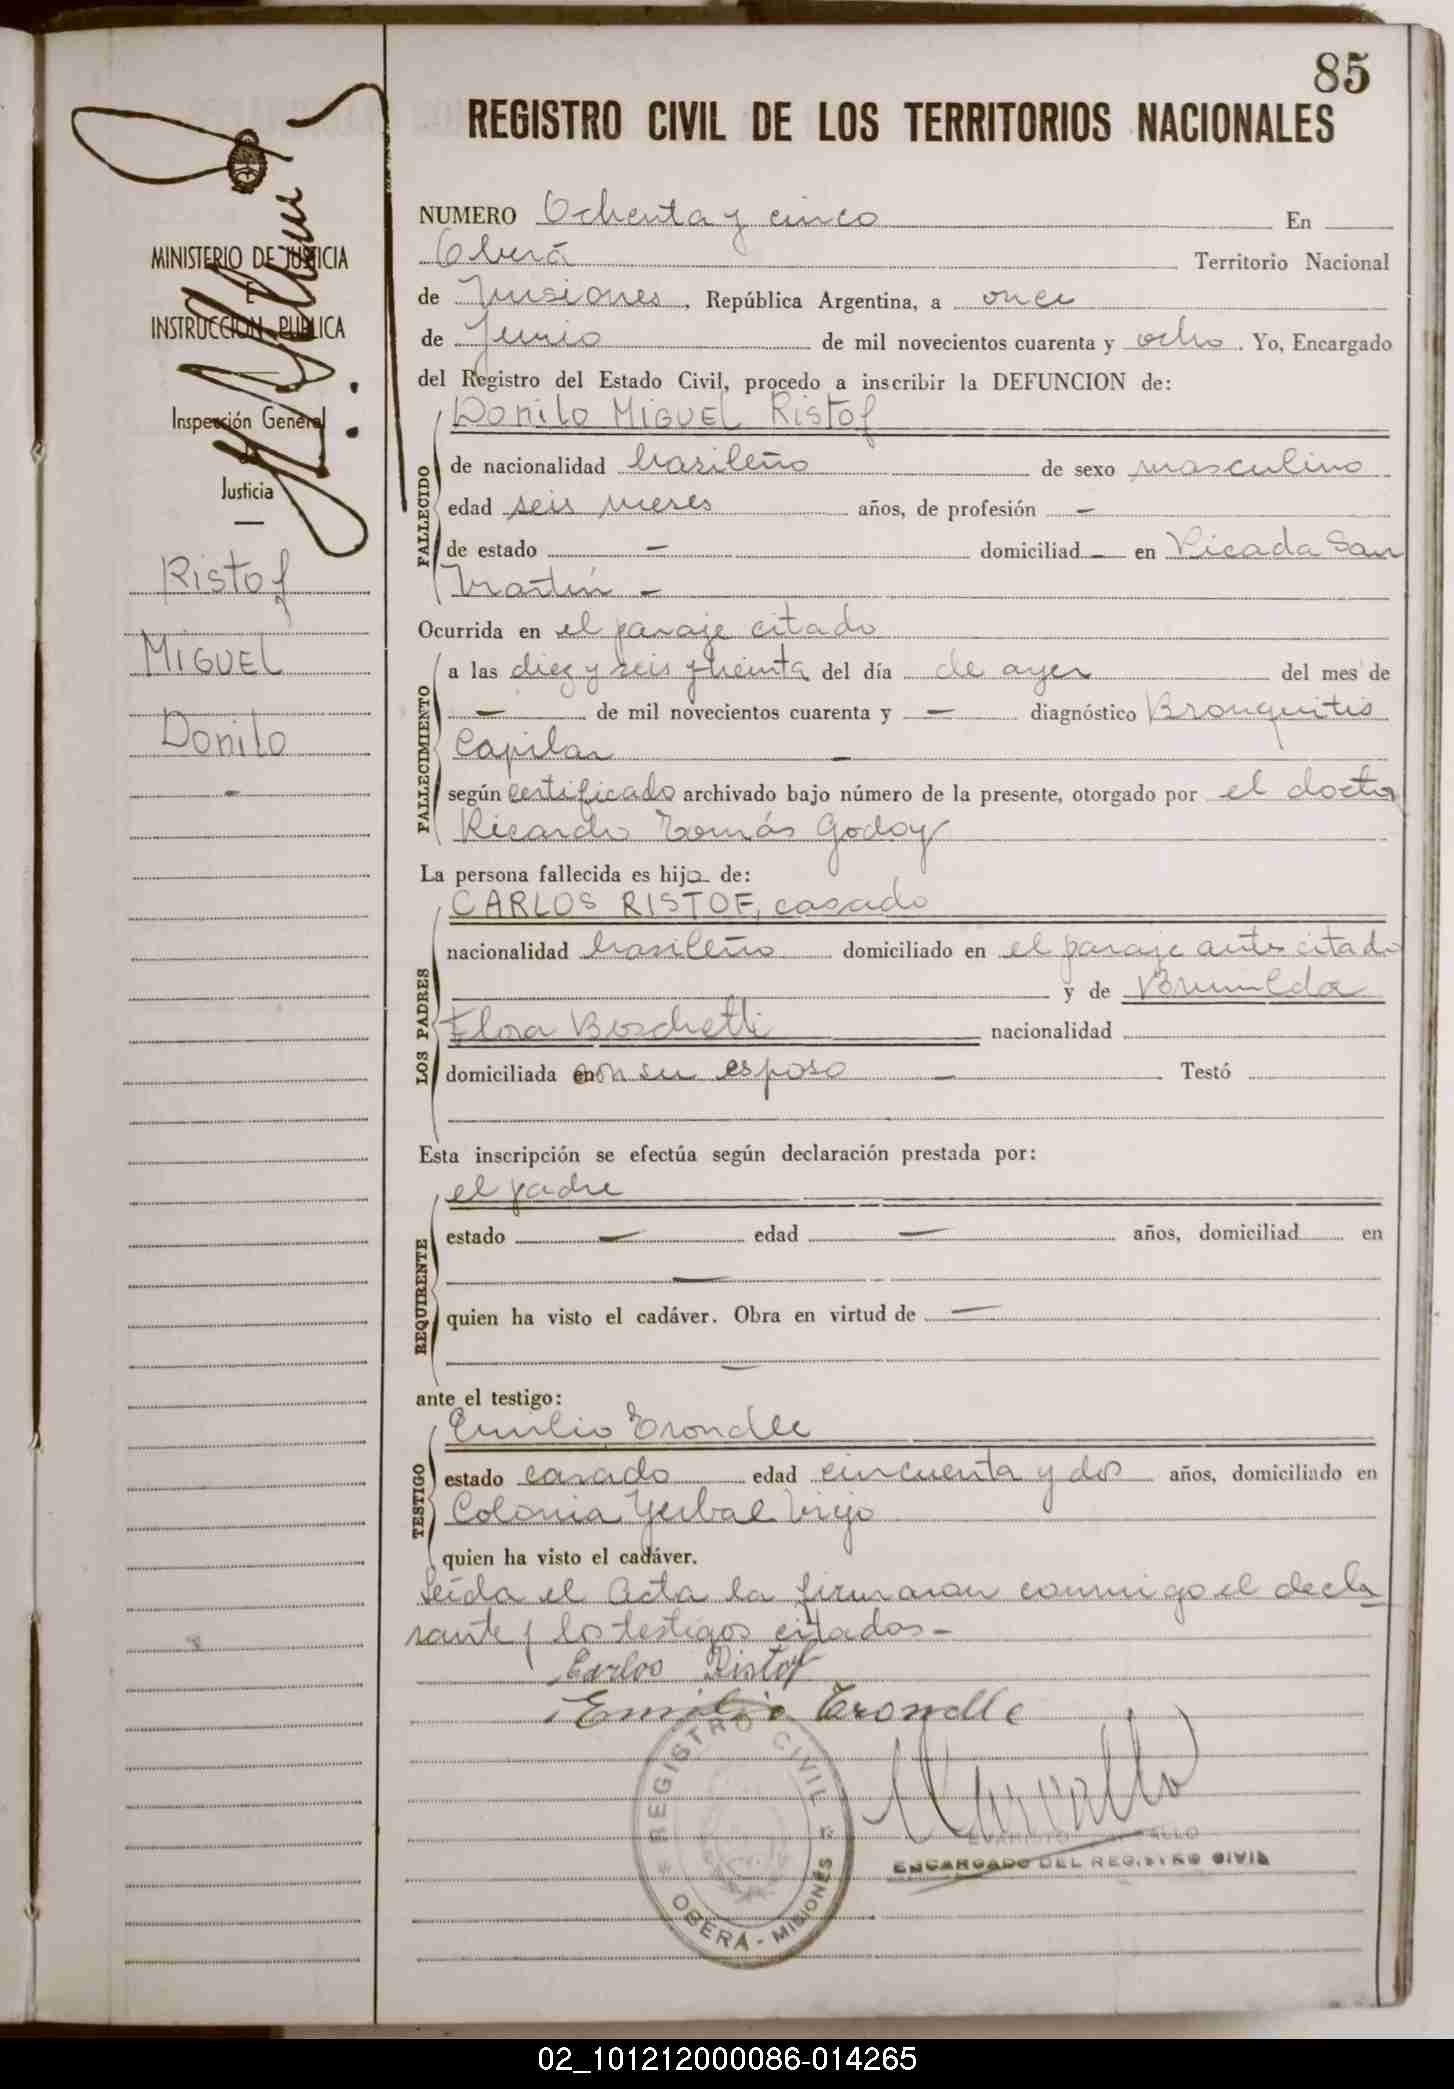 85
REGISTRO CIVIL DE LOS TERRITORIOS NACIONALES
MINISTERIO DE JUSTICIA
E
INSTRUCCION PUBLICA
Inspección General
de
Justicia
Ristof
MIGUEL
Donilo
-
NUMERO Ochenta y cinco En
Oberá Territorio Nacional
de Misiones, República Argentina, a once
de Junio de mil novecientos cuarenta y ocho. Yo, Encargado
del Registro del Estado Civil, procedo a inscribir la DEFUNCION de:
Donilo MIGUEL Ristof
FALLECIDO
de nacionalidad brasileño de sexo masculino
edad seis meses años, de profesión -
de estado - domiciliad - en Picada San
Martín -
Ocurrida en el paraje citado
FALLECIMIENTO
a las diez y seis y treinta del día de ayer del mes de
- de mil novecientos cuarenta y - diagnóstico Bronquitis
Capilar -
según certificado archivado bajo número de la presente, otorgado por el doctor
Ricardo Tomás Godoy
La persona fallecida es hijo de:
LOS PADRES
CARLOS RISTOF, casado
nacionalidad brasileño domiciliado en el paraje antes citado
y de Brunilda
Flora Boschetti nacionalidad
domiciliada en con su esposo - Testó
Esta inscripción se efectúa según declaración prestada por:
REQUIRENTE
el padre
estado - edad - años, domiciliad en
-
quien ha visto el cadáver. Obra en virtud de -
-
ante el testigo:
TESTIGO
Emilio Trondle
estado casado edad cincuenta y dos años, domiciliado en
Colonia Yerbal Viejo
quien ha visto el cadáver.
Leída el Acta la firmaron conmigo el decla
rante y los testigos citados -
Carlos Ristof
Emilio Trondle
REGISTRO CIVIL
OBERA - MISIONES
ENCARGADO DEL REGISTRO CIVIL
02_101212000086-014265